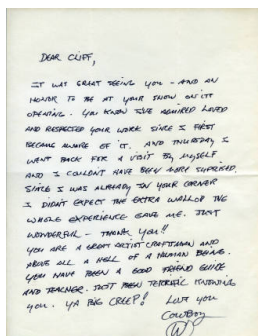 DEAR CLIFF,
IT WAS GREAT SEEING YOU - AND AN
HONOR TO BE AT YOUR SHOW ON ITS
OPENING. YOU KNOW I'VE ADMIRED LOVED
AND RESPECTED YOUR WORK SINCE I FIRST
BECAME AWARE OF IT. AND THURSDAY I
WENT BACK FOR A VISIT BY MYSELF
AND I COULDN'T HAVE BEEN MORE SUPRISED.
SINCE I WAS ALREADY IN YOUR CORNER
I DIDN'T EXPECT THE EXTRA WALLOP THE
WHOLE EXPERIENCE GAVE ME. JUST
WONDERFUL - THANK YOU!!
YOU ARE A GREAT ARTIST CRAFTSMAN AND
ABOVE ALL A HELL OF A HUMAN BEING.
YOU HAVE BEEN A GOOD FRIEND GUIDE
AND TEACHER. JUST BEEN TERRIFIC KNOWING
YOU. YA BIG CREEP! LUV YOU
COWBOY